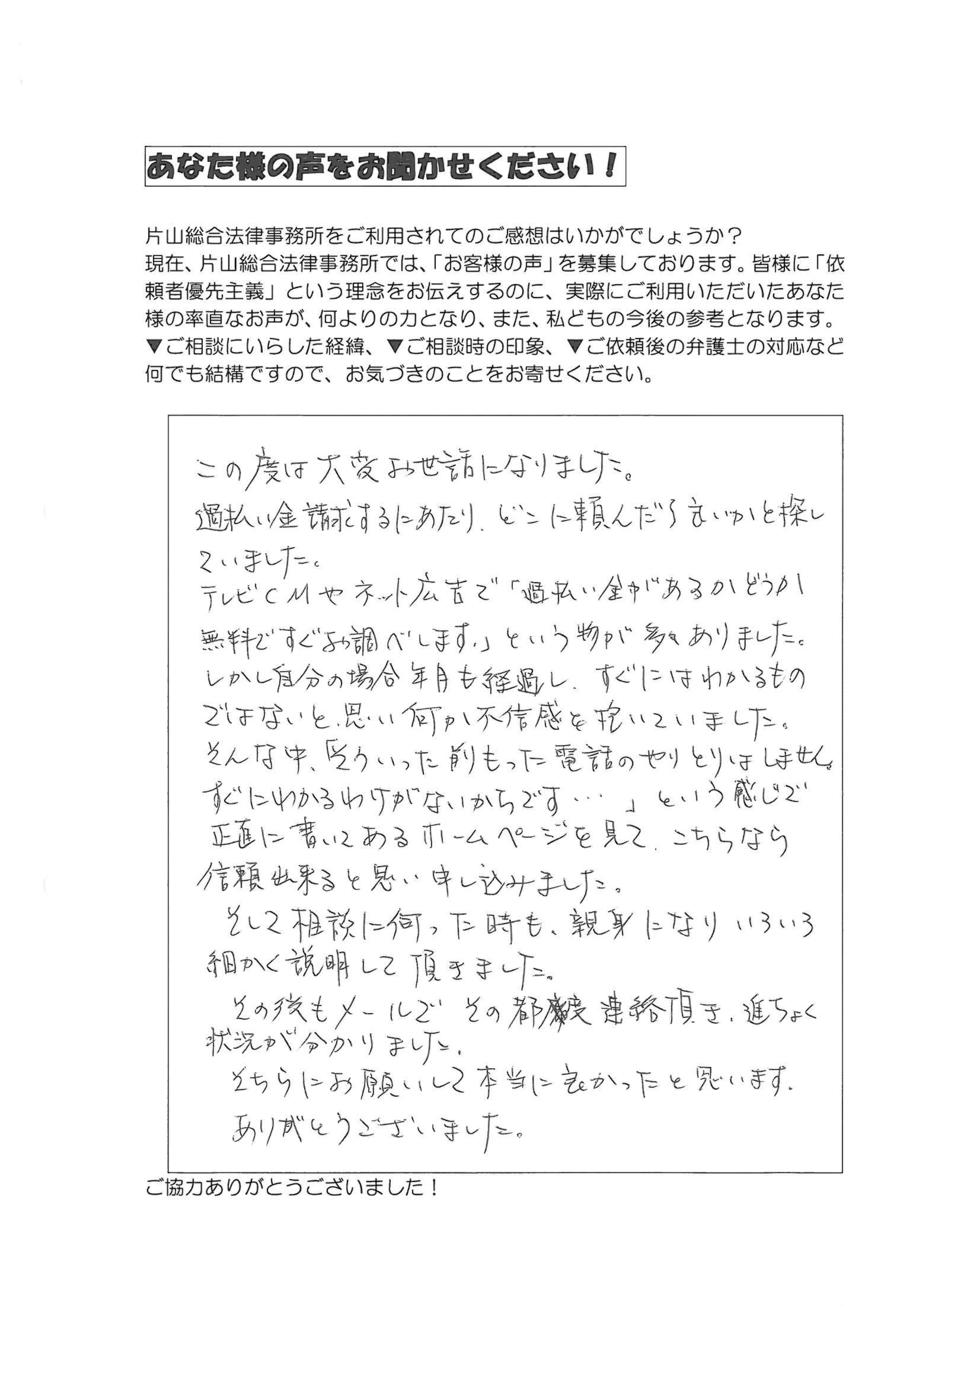 あなた様の声をお聞かせください！
片山総合法律事務所をご利用されてのご感想はいかがでしょうか？
現在、片山総合法律事務所では、「お客様の声」を募集しております。皆様に「依
頼者優先主義」という理念をお伝えするのに、実際にご利用いただいたあなた
様の率直なお声が、何よりの力となり、また、私どもの今後の参考となります。
▼ご相談にいらした経緯、▼ご相談時の印象、▼ご依頼後の弁護士の対応など
何でも結構ですので、お気づきのことをお寄せください。
この度は大変お世話になりました。
過払い金請求するにあたり、どこに頼んだら良いかと探し
ていました。
テレビCMやネット広告で「過払い金があるかどうか
無料ですぐお調べします。」という物が多々ありました。
しかし自分の場合年月も経過し、すぐにはわかるもの
ではないと思い何か不信感を抱いていました。
そんな中、「そういった前もった電話のやりとりはしません。
すぐにわかるわけがないからです…」という感じで
正直に書いてあるホームページを見て、こちらなら
信頼出来ると思い申し込みました。
そして相談に伺った時も、親身になりいろいろ
細かく説明して頂きました。
その後もメールでその都度連絡頂き、進ちょく
状況が分かりました。
そちらにお願いして本当に良かったと思います。
ありがとうございました。
ご協力ありがとうございました！